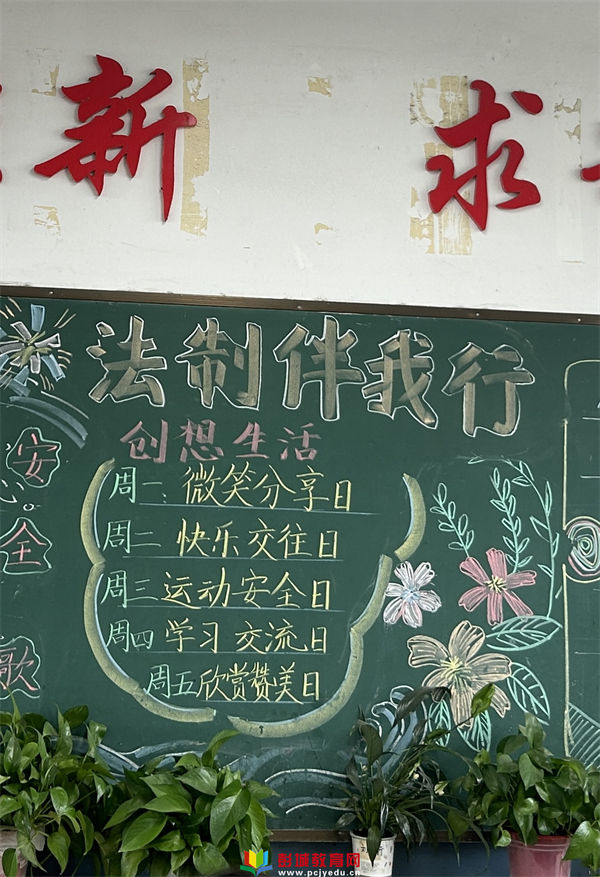 新 求
法制伴我行
创想生活
周一：微笑分享日
周二 快乐交往日
周三 运动安全日
周四 学习交流日
周五欣赏赞美日
安
全
歌
彭城教育网
www.pcjyedu.cn